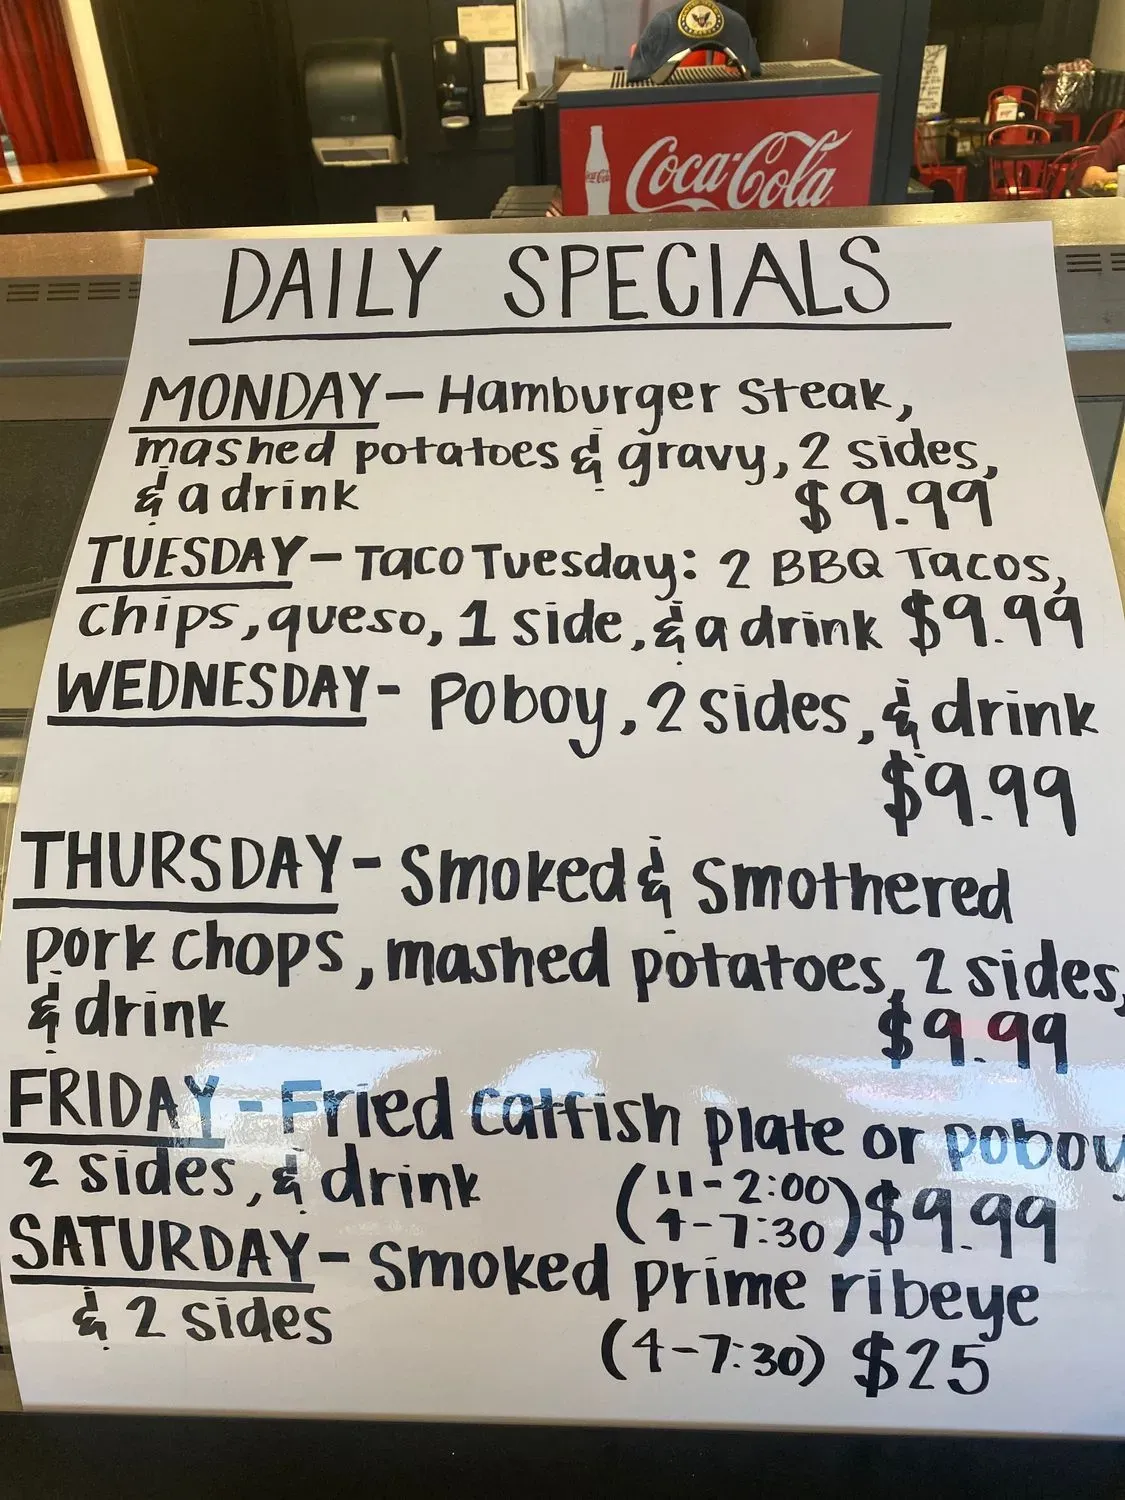 Coca-Cola
DAILY SPECIALS
MONDAY - Hamburger Steak,
mashed potatoes & gravy, 2 sides,
& a drink $9.99
TUESDAY - Taco Tuesday: 2 BBQ Tacos,
chips, queso, 1 side, & a drink $9.99
WEDNESDAY - Poboy, 2 sides, & drink
$9.99
THURSDAY - Smoked & Smothered
pork chops, mashed potatoes, 2 sides,
& drink $9.99
FRIDAY - Fried Catfish plate or poboy
2 sides, & drink (11-2:00 4-7:30) $9.99
SATURDAY - Smoked prime ribeye
& 2 sides (4-7:30) $25